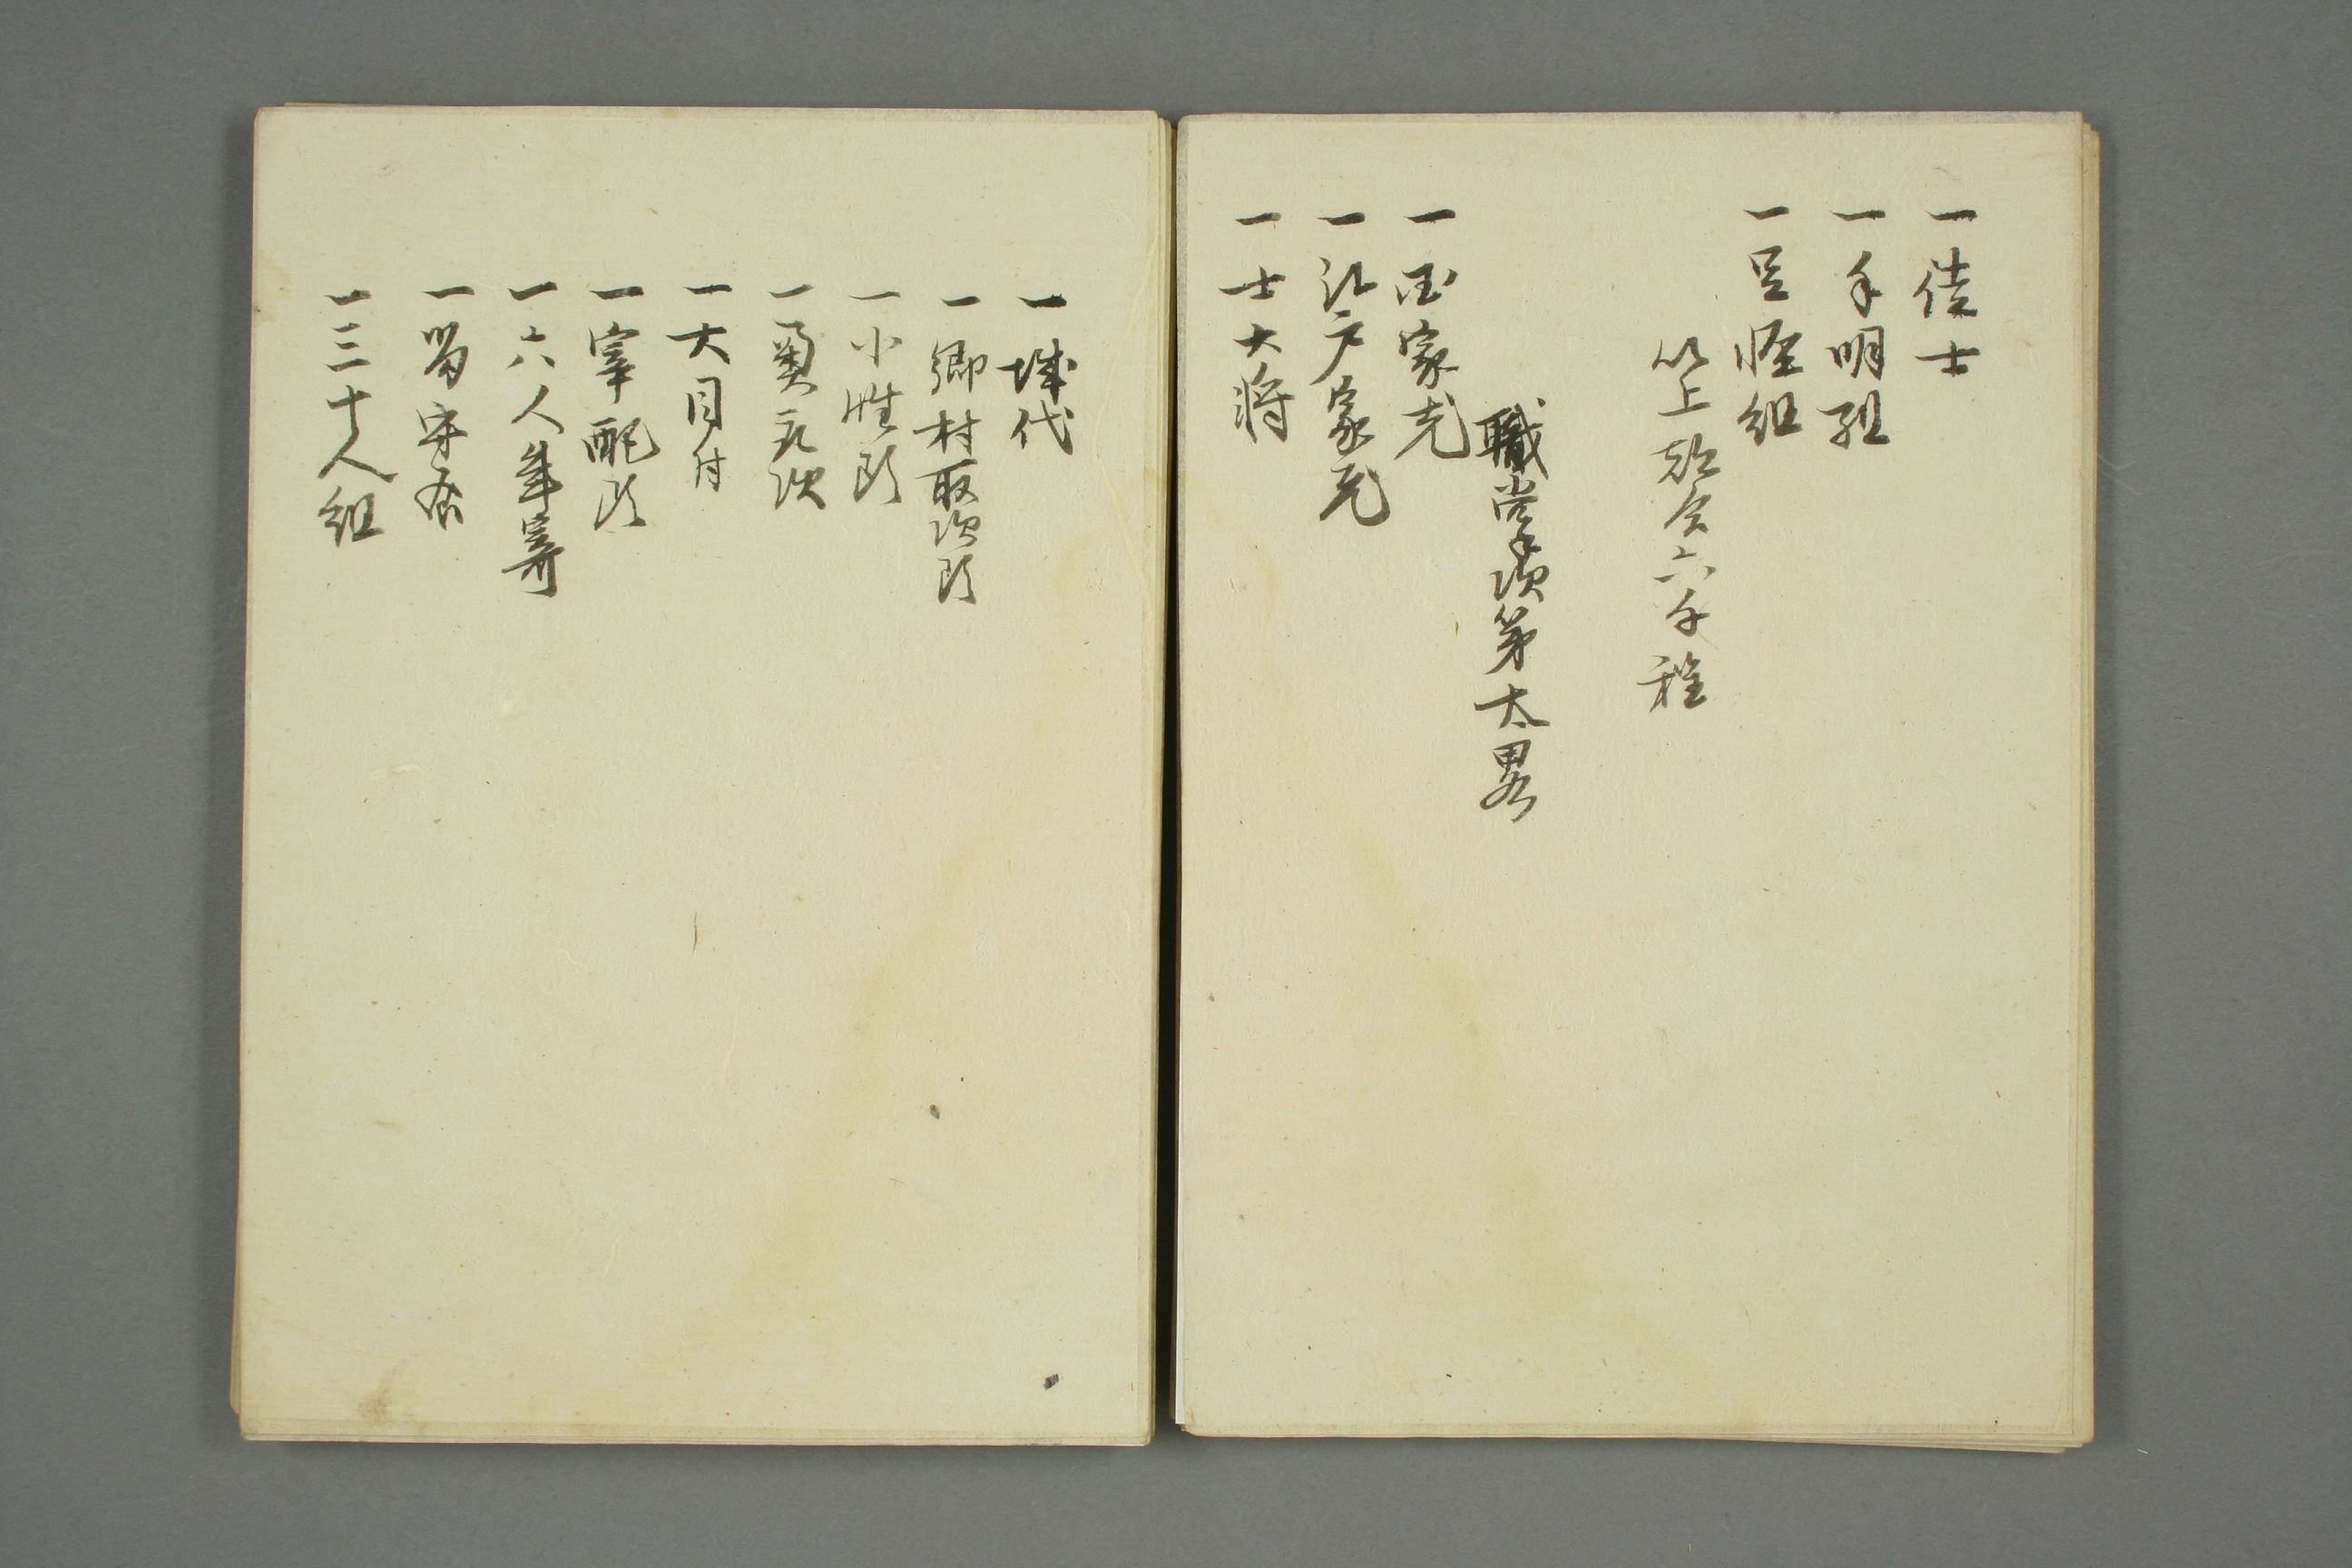 一徒士
一手明組
一足軽組
以上都合六千程
職掌次第太畧
一国家老
一江戸家老
一士大将
一城代
一郷村取次頭
一小姓頭
一奥取次
一大目付
一宰配頭
一六人年寄
一留守居
一三十人組